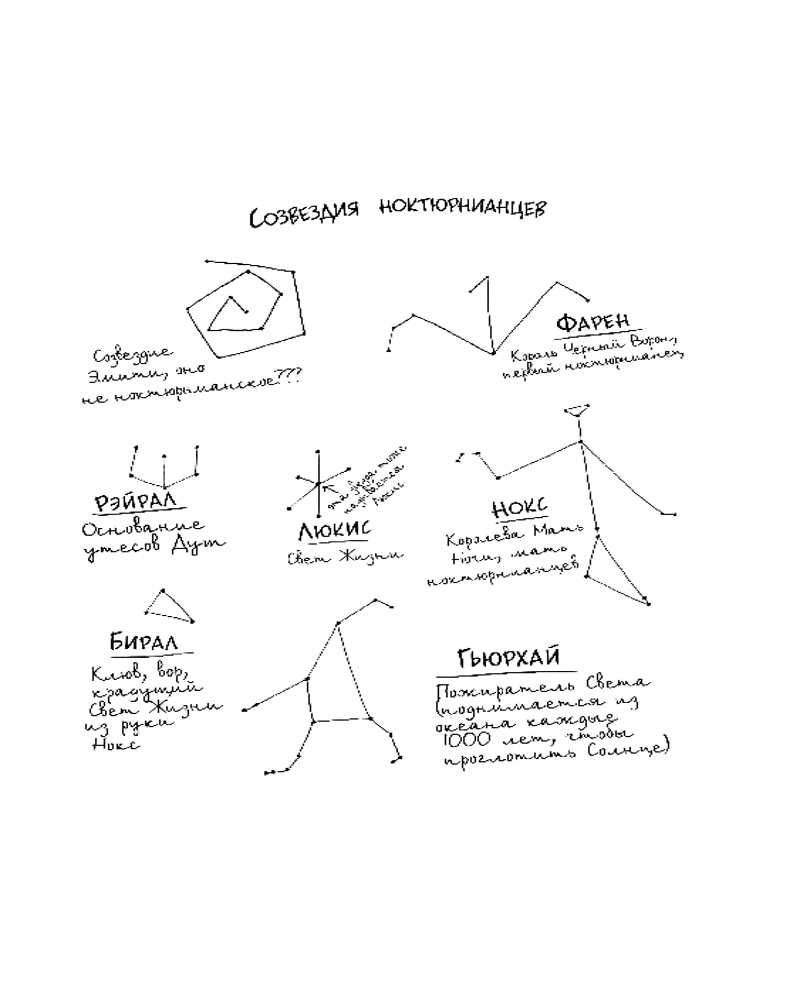 Созвездия ноктюрнианцев
Созвездие
Эмити, оно
не ноктюрнианское???
Фарен
Король Черный Ворон,
первый ноктюрнианец
Рэйрал
Основание
утесов Дут
эта звезда тоже
называется
Люкис
Люкис
Свет Жизни
Нокс
Королева Мать
Ночи, мать
ноктюрнианцев
Бирал
Клюв, вор,
крадущий
Свет Жизни
из руки
Нокс
Гьюрхай
Пожиратель Света
(поднимается из
океана каждые
1000 лет, чтобы
проглотить Солнце)